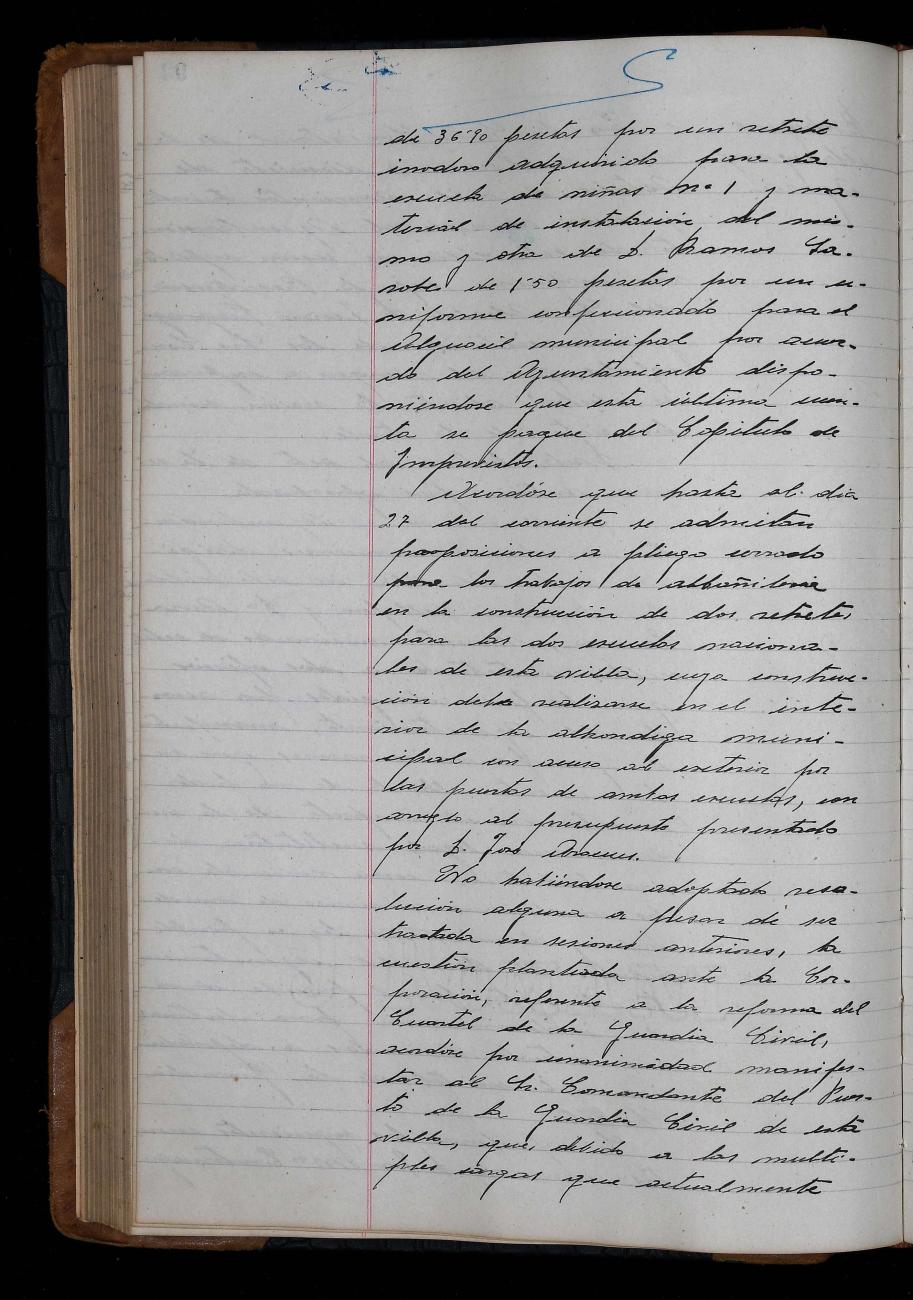 de 36'90 pesetas por un retrete
inodoro adquirido para la
escuela de niñas nº 1 y ma-
terial de instalación del mis-
mo y otra de D. Ramos Sa-
robe de 150 pesetas por un u-
niforme confeccionado para el
Alguacil municipal por acuer-
do del Ayuntamiento dispo-
niéndose que esta última cuen-
ta se pague del Capítulo de
Imprevistos.
Acordóse que hasta el día
27 del corriente se admitan
proposiciones a pliego cerrado
para los trabajos de albañilería
en la construcción de dos retretes
para las dos escuelas naciona-
les de esta villa, cuya construc-
ción debe realizarse en el inte-
rior de la alhondiga muni-
cipal con acceso al exterior por
las puertas de ambas escuelas, con
arreglo al presupuesto presentado
por D. José
No habiéndose adoptado reso-
lución alguna a pesar de ser
tratada en sesiones anteriores, la
cuestión planteada ante la Cor-
poración, referente a la reforma del
Cuartel de la Guardia Civil,
acordóse por unanimidad manifes-
tar al Sr. Comandante del Pues-
to de la Guardia Civil de esta
villa, que, debido a las múlti-
ples cargas que actualmente